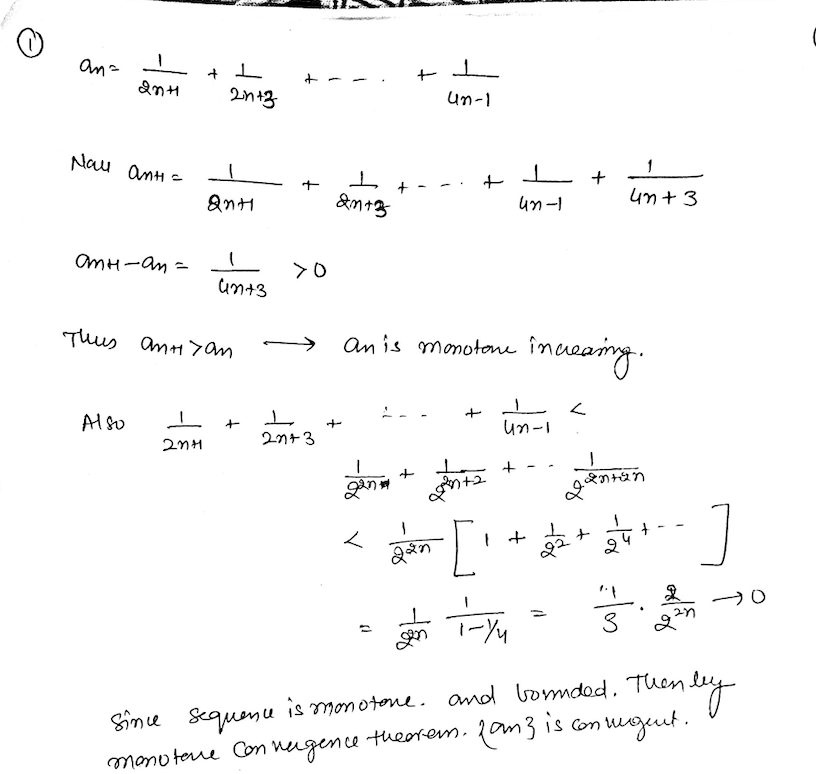 ①
an = 1/(2n+1) + 1/(2n+3) + - - . + 1/(4n-1)
Now an+1 = 1/(2n+1) + 1/(2n+3) + - - .. + 1/(4n-1) + 1/(4n+3)
an+1 - an = 1/(4n+3) > 0
Thus an+1 > an ⟶ an is monotone increasing.
Also 1/(2n+1) + 1/(2n+3) + - - - + 1/(4n-1) <
1/2^(2n) + 1/2^(2n+2) + - - 1/2^(2n+2n)
< 1/2^(2n) [ 1 + 1/2^2 + 1/2^4 + - - ]
= 1/2^(2n) 1/(1-1/4) = /3 . /2^(2n) → 0
Since sequence is monotone. and bounded. Then by
monotone Convergence theorem. {an} is convergent.